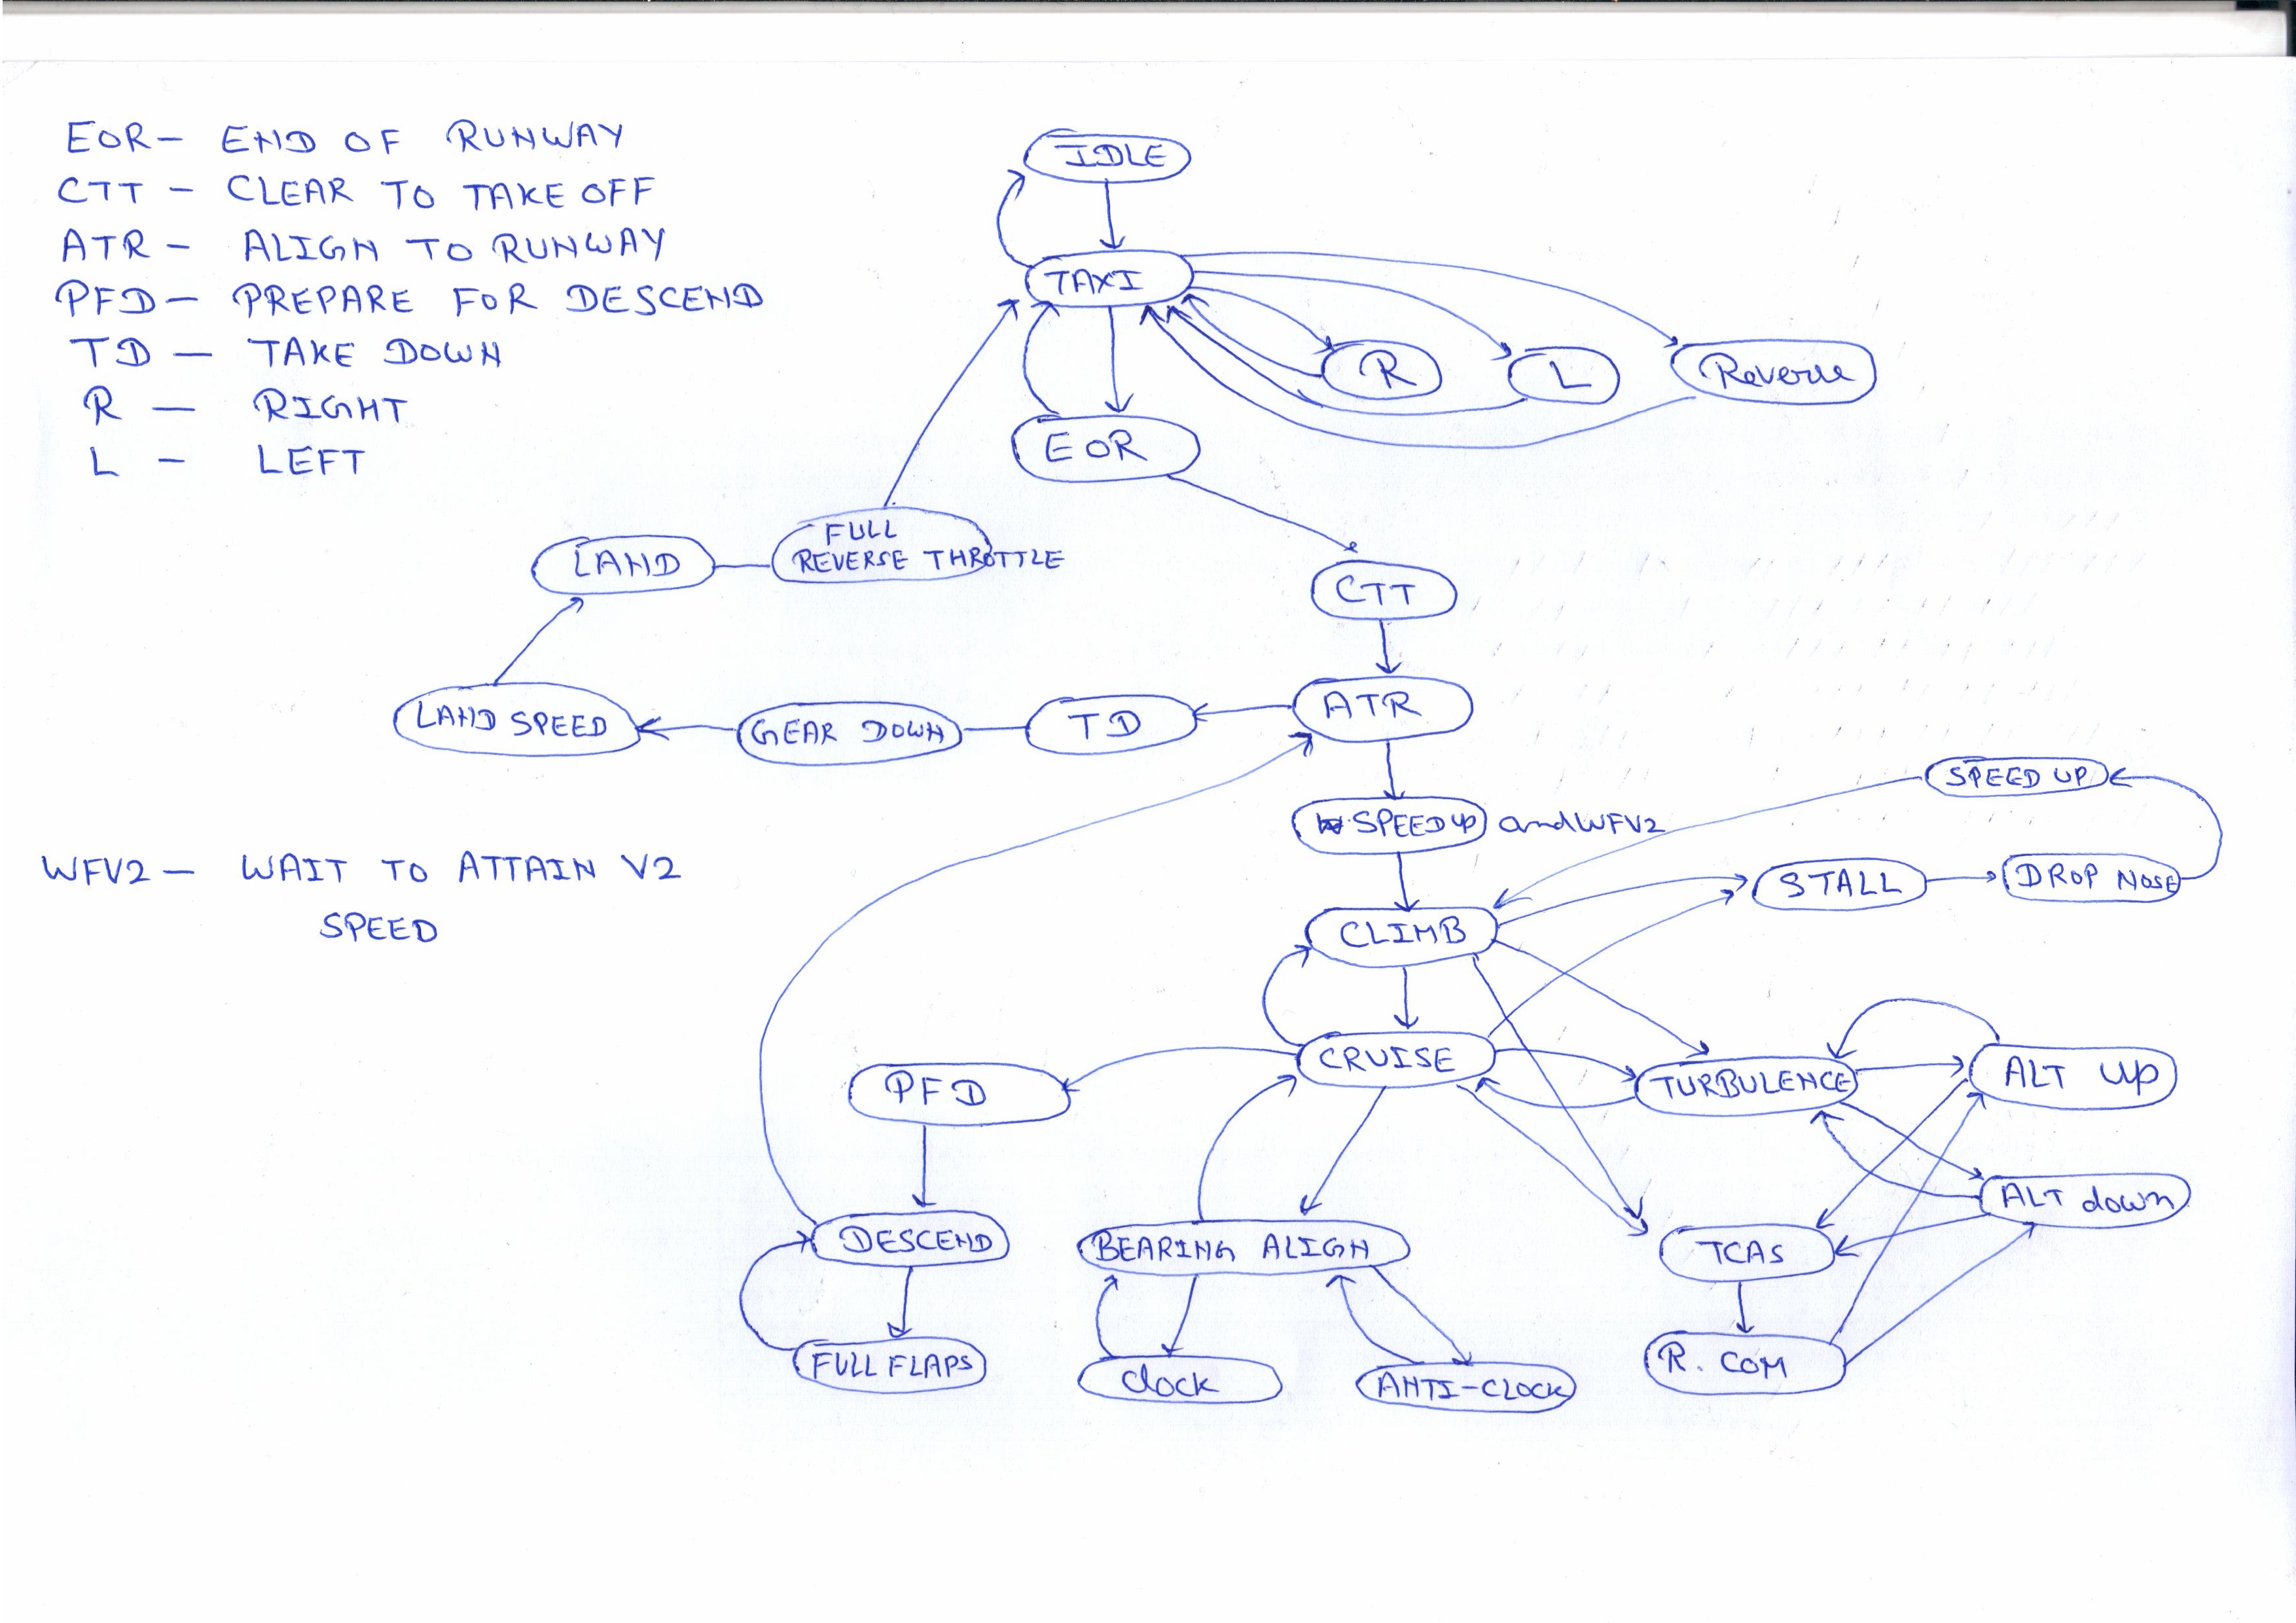 EOR - END OF RUNWAY
CTT - CLEAR TO TAKE OFF
ATR - ALIGN TO RUNWAY
PFD - PREPARE FOR DESCEND
TD - TAKE DOWN
R - RIGHT
L - LEFT
WFV2 - WAIT TO ATTAIN V2
SPEED
IDLE
TAXI
R
L
Reverse
EOR
FULL
REVERSE THROTTLE
LAND
CTT
ATR
TD
GEAR DOWN
LAND SPEED
SPEED UP
SPEED UP and WFV2
STALL
DROP NOSE
CLIMB
CRUISE
PFD
TURBULENCE
ALT UP
ALT down
DESCEND
BEARING ALIGN
TCAS
FULL FLAPS
clock
ANTI-CLOCK
R. COM